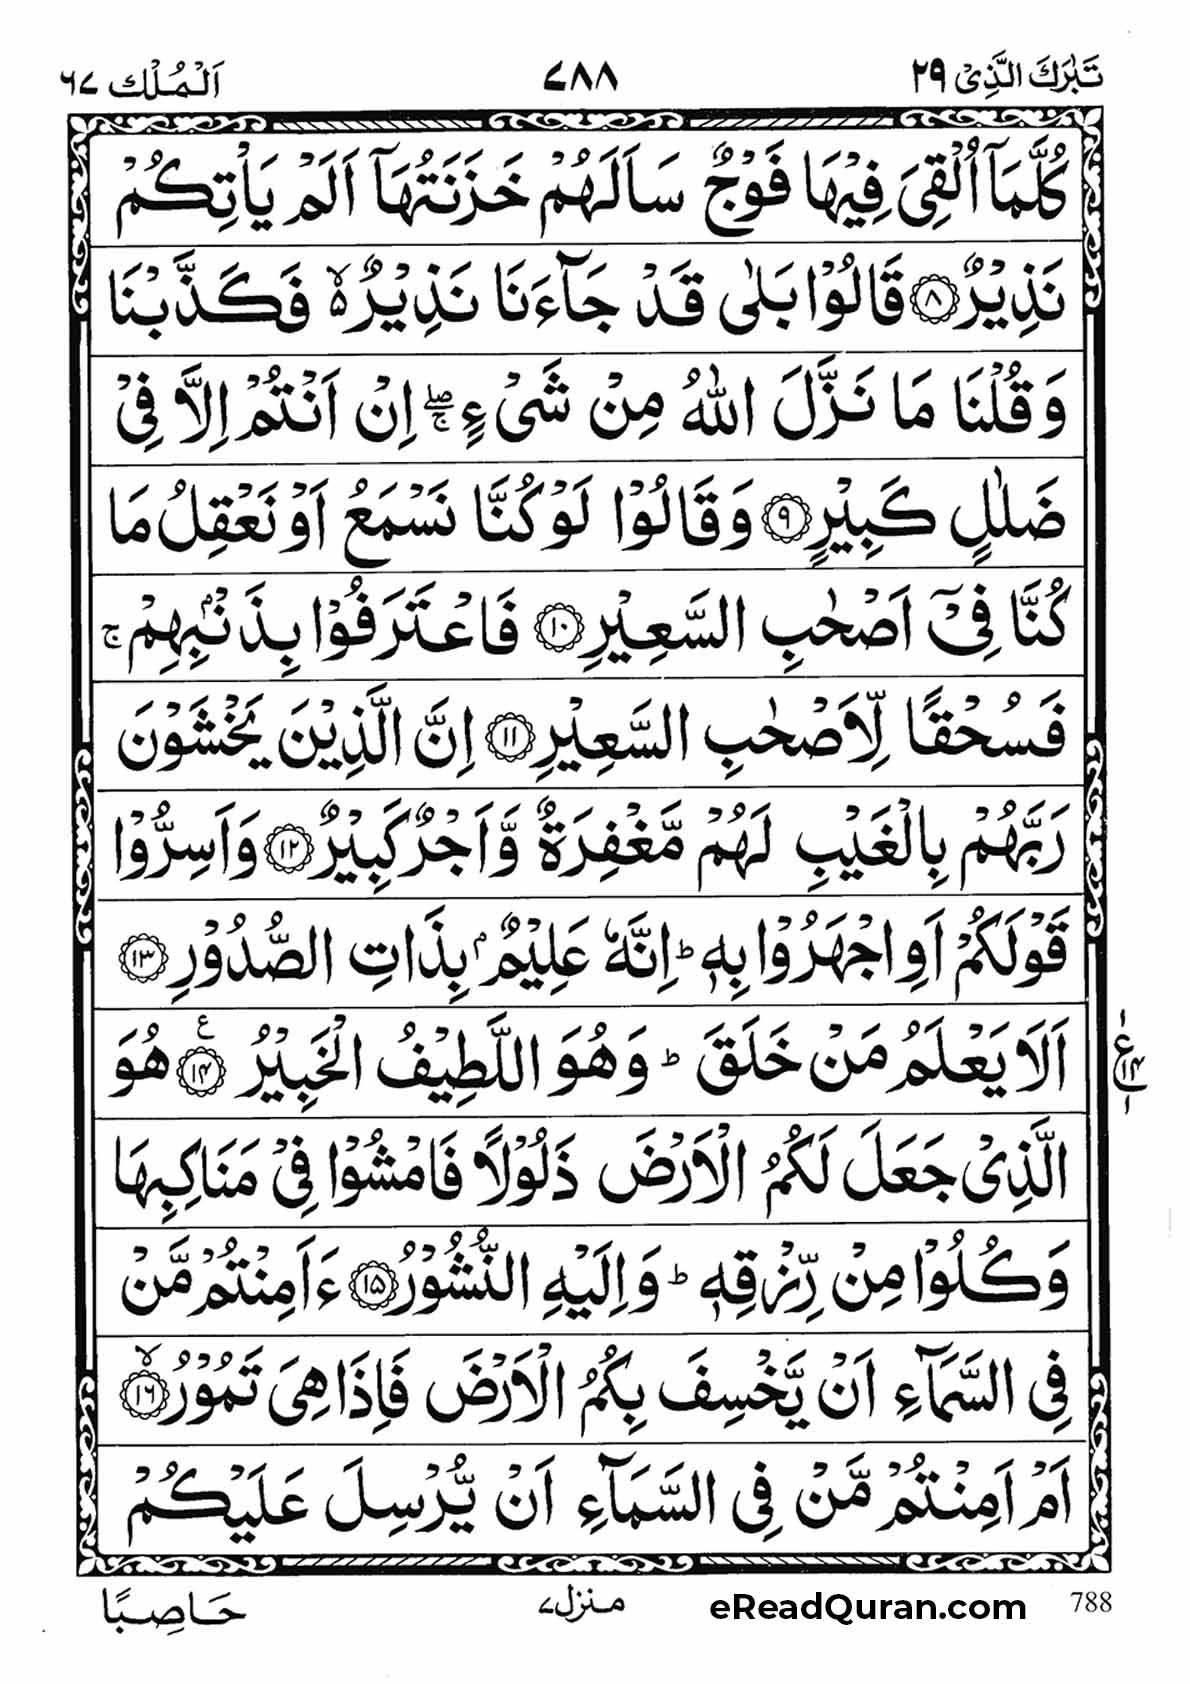 تَبٰرَكَ الَّذِیْ ٢٩ ٧٨٨ اَلْمُلْك ٦٧
كُلَّمَاۤ اُلْقِیَ فِیْهَا فَوْجٌ سَاَلَهُمْ خَزَنَتُهَاۤ اَلَمْ یَاْتِكُمْ
نَذِیْرٌ ۝٨ قَالُوْا بَلٰی قَدْ جَآءَنَا نَذِیْرٌ ۙ۬ فَكَذَّبْنَا
وَ قُلْنَا مَا نَزَّلَ اللّٰهُ مِنْ شَیْءٍ ۖۚ اِنْ اَنْتُمْ اِلَّا فِیْ
ضَلٰلٍ كَبِیْرٍ ۝٩ وَ قَالُوْا لَوْ كُنَّا نَسْمَعُ اَوْ نَعْقِلُ مَا
كُنَّا فِیْۤ اَصْحٰبِ السَّعِیْرِ ۝١٠ فَاعْتَرَفُوْا بِذَنْۢبِهِمْ ۚ
فَسُحْقًا لِّاَصْحٰبِ السَّعِیْرِ ۝١١ اِنَّ الَّذِیْنَ یَخْشَوْنَ
رَبَّهُمْ بِالْغَیْبِ لَهُمْ مَّغْفِرَةٌ وَّ اَجْرٌ كَبِیْرٌ ۝١٢ وَ اَسِرُّوْا
قَوْلَكُمْ اَوِ اجْهَرُوْا بِهٖ ؕ اِنَّهٗ عَلِیْمٌۢ بِذَاتِ الصُّدُوْرِ ۝١٣
اَلَا یَعْلَمُ مَنْ خَلَقَ ؕ وَ هُوَ اللَّطِیْفُ الْخَبِیْرُ ۝١٤ ع هُوَ
١ ع ١٤ ١
الَّذِیْ جَعَلَ لَكُمُ الْاَرْضَ ذَلُوْلًا فَامْشُوْا فِیْ مَنَاكِبِهَا
وَ كُلُوْا مِنْ رِّزْقِهٖ ؕ وَ اِلَیْهِ النُّشُوْرُ ۝١٥ ءَاَمِنْتُمْ مَّنْ
فِی السَّمَآءِ اَنْ یَّخْسِفَ بِكُمُ الْاَرْضَ فَاِذَا هِیَ تَمُوْرُ ۝١٦ ۙ
اَمْ اَمِنْتُمْ مَّنْ فِی السَّمَآءِ اَنْ یُّرْسِلَ عَلَیْكُمْ
788 eReadQuran.com منزل ٧ حَاصِبًا